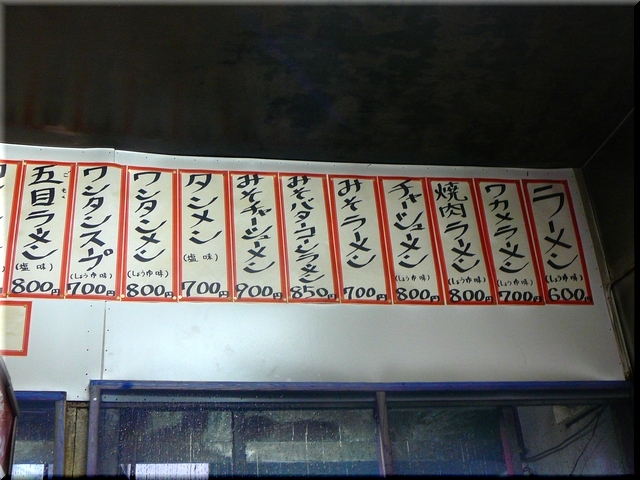 ラーメン
(しょうゆ味)
600円
ワカメラーメン
(しょうゆ味)
700円
焼肉ラーメン
(しょうゆ味)
800円
チャーシューメン
(しょうゆ味)
800円
みそラーメン
700円
みそバターコーンラーメン
850円
みそチャーシューメン
900円
タンメン
(塩味)
700円
ワンタンメン
(しょうゆ味)
800円
ワンタンスープ
(しょうゆ味)
700円
五目ラーメン
ごもく
(塩味)
800円